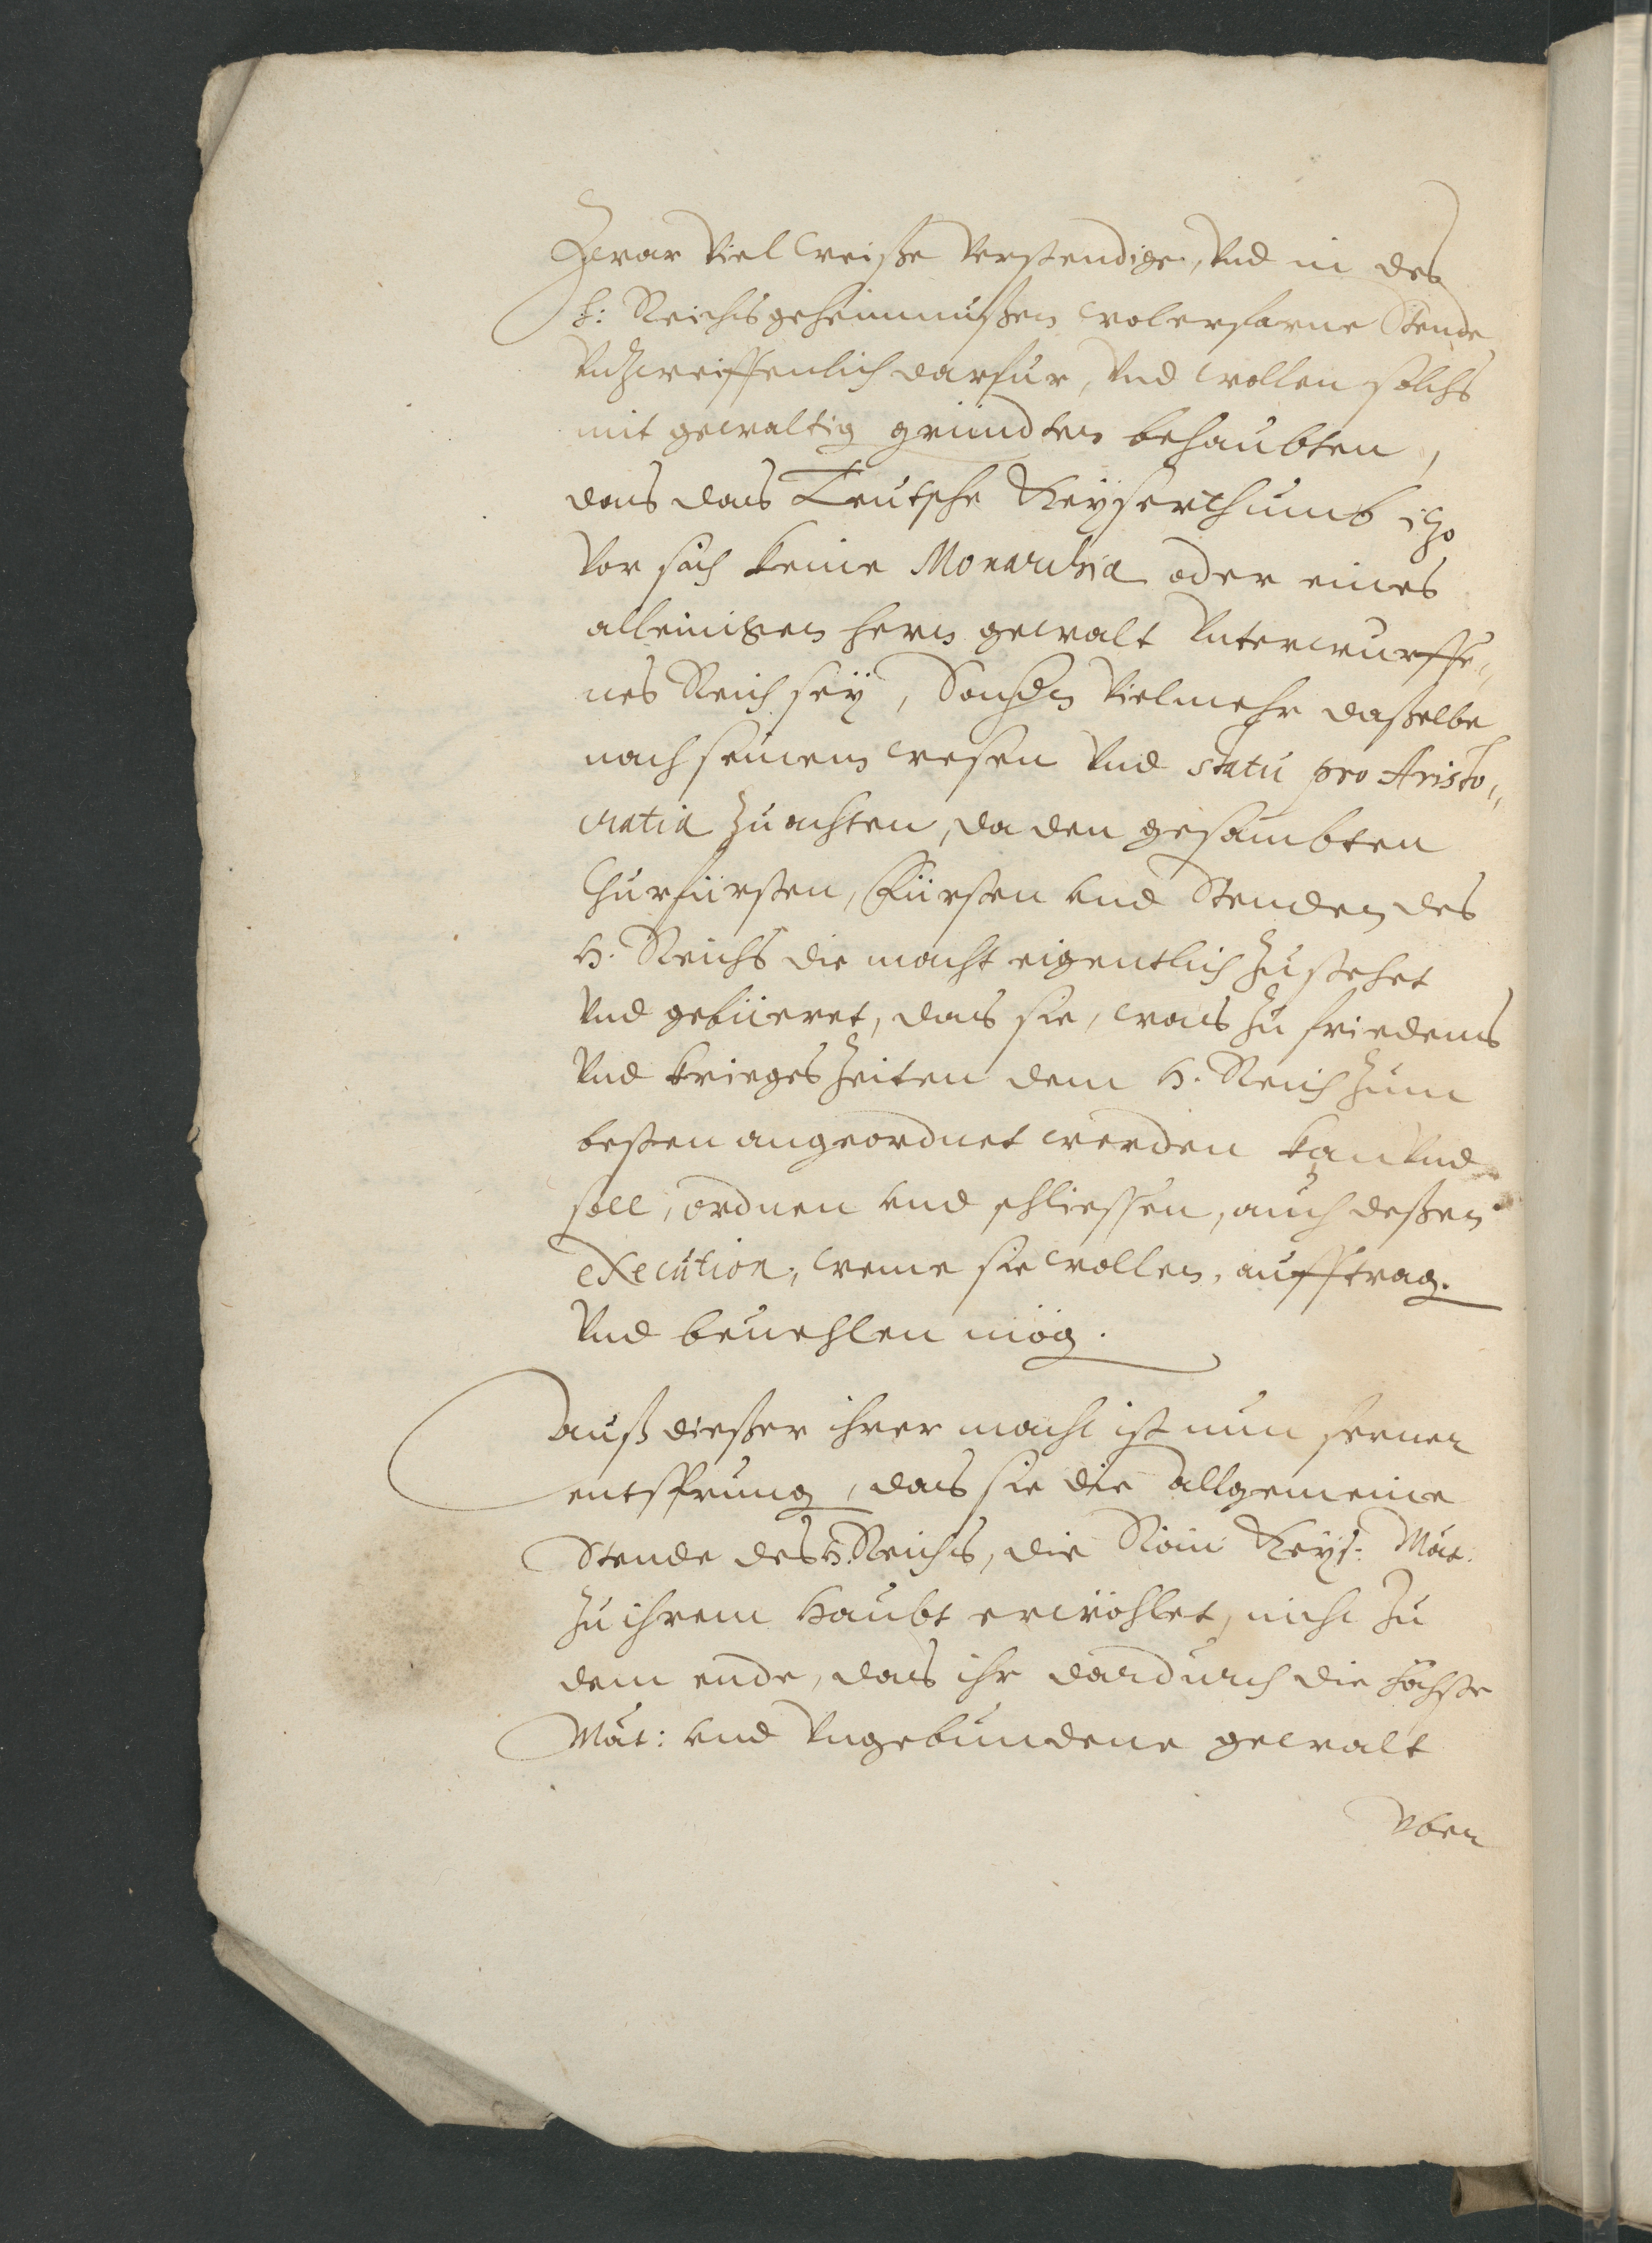 Zwar Viel weiße Verstendige, Vnd in des
h: Reichs geheimmüßen wolerfarne Stende
Vnzweiffenlich darfür, Vnd wollen solchs
mit gewaltig gründten behaubten,
das das Teutsche Keyserthumb itzo
Vor sich keine Monarchia oder eines
alleinigen hern gewalt Vnterwurffe„
nes Reich sey, Sondern Vielmehr daßelbe
nach seinem wesen Vnd statu pro Aristo„
cratia zu achten, da den gesambten
Churfürsten, Fürsten vnd Stenden des
H. Reichs die macht eigentlich zustehet
Vnd gebüeret, das sie, was zu friedens
Vnd krieges Zeiten dem H. Reich zum
besten angeordnet werden kan Vnd
soll, ordnen vnd schliessen, auch deßen
execution, weme sie wollen, aufftrag.
Vnd beuehlen mög.
Auß dießer ihrer macht ist nun ferner
entsprung, das sie die allgemeine
Stende des H. Reichs, die Röm Keys: Mat:
zu ihrem Haubt erwöhlet, nicht zu
dem ende, das ihr dardurch die höchste
Mat: vnd Vngebundene gewalt
Vber